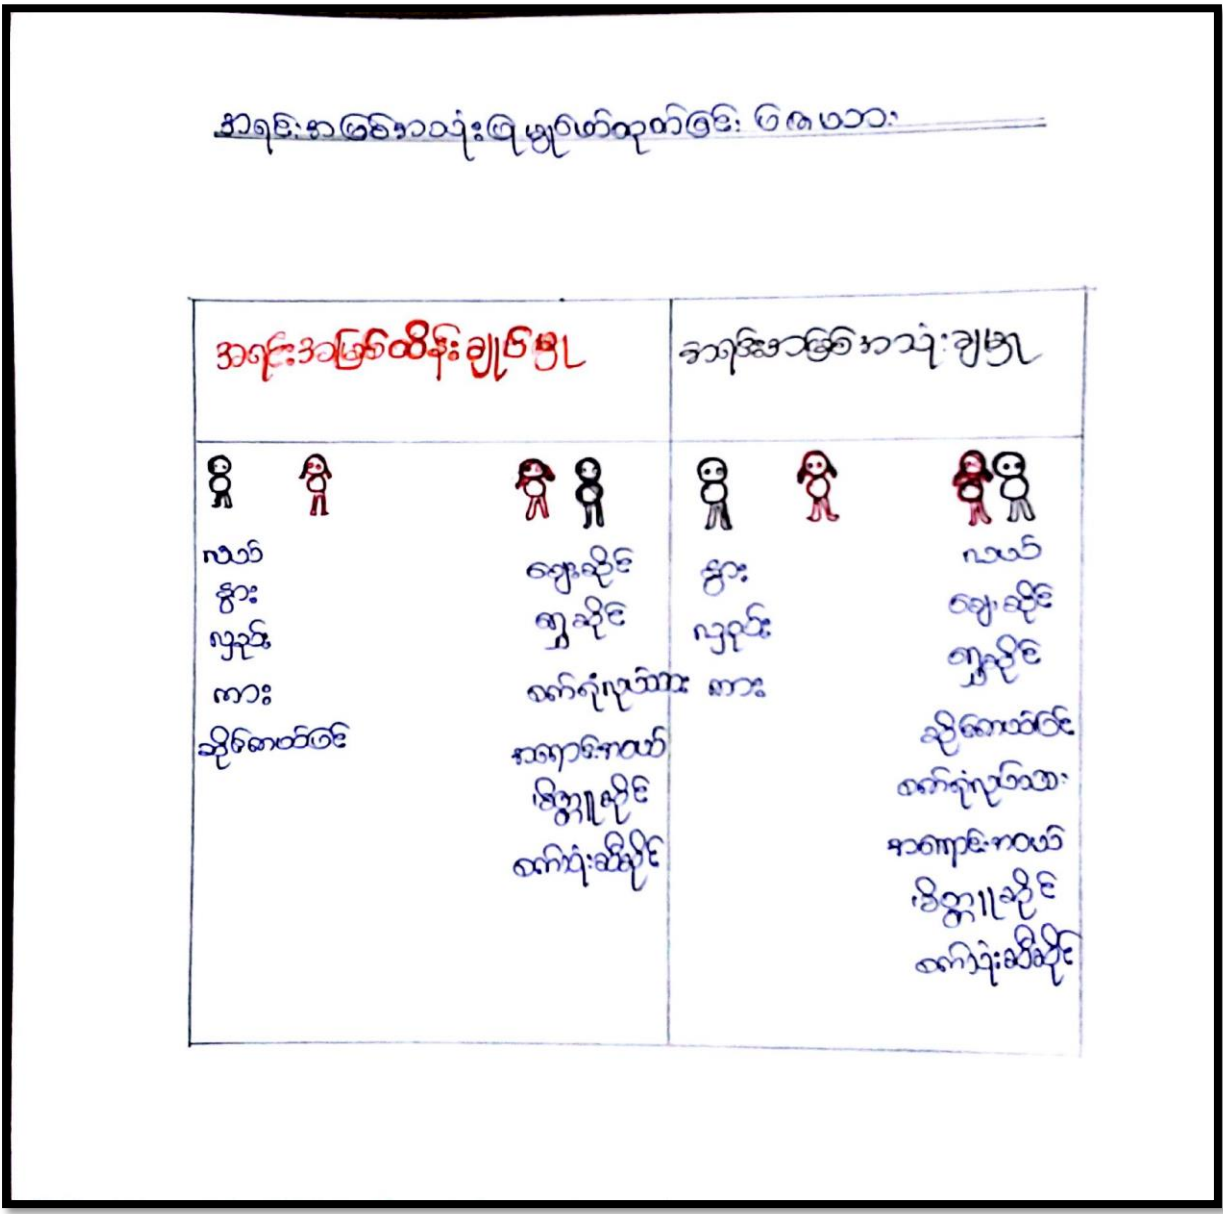 အရင်းအမြစ်အသုံးပြုမှုဖော်ထုတ်ခြင်း
အရင်းအမြစ်ထိန်းချုပ်မှု
အရင်းအမြစ်အသုံးချမှု
လယ်
နွား
လှည်း
ကား
ဆိုင်ကယ်ပြင်
ဈေးဆိုင်
ရွှေဆိုင်
စက်ရုံလုပ်သား
အရောင်းအဝယ်
မိတ္တူဆိုင်
စက်သုံးဆီဆိုင်
နွား
လှည်း
ကား
လယ်
ဈေးဆိုင်
ရွှေဆိုင်
ဆိုင်ကယ်ပြင်
စက်ရုံလုပ်သား
အရောင်းအဝယ်
မိတ္တူဆိုင်
စက်သုံးဆီဆိုင်